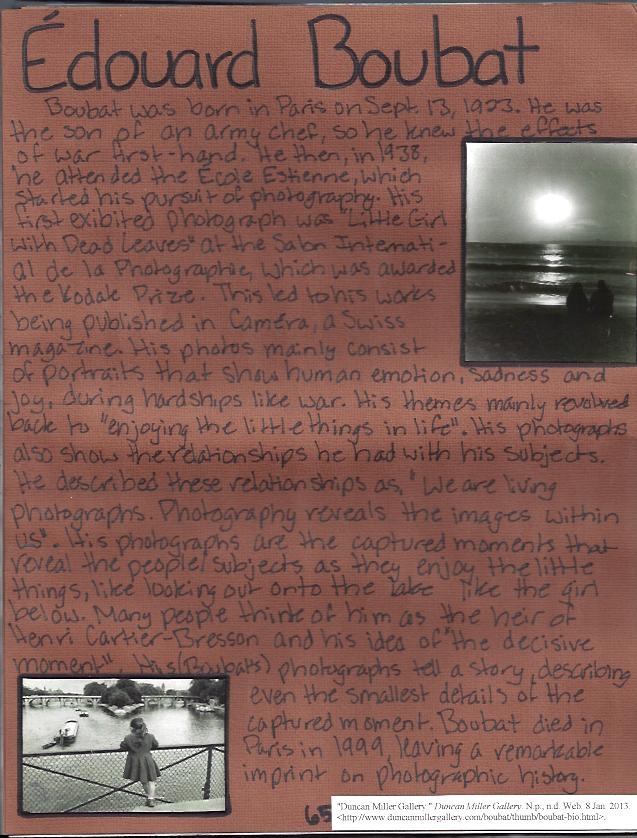 Édouard Boubat
Boubat was born in Paris on Sept. 13, 1923. He was
the son of an army chef, so he knew the effects
of war first-hand. He then, in 1938,
he attended the École Estienne, which
started his pursuit of photography. His
first exibited photograph was "Little Girl
with Dead Leaves" at the Salon Internati-
al de la Photographie, which was awarded
the Kodak Prize. This led to his works
being published in Caméra, a Swiss
magazine. His photos mainly consist
of portraits that show human emotion, sadness and
joy, during hardships like war. His themes mainly revolved
back to "enjoying the little things in life". His photographs
also show the relationships he had with his subjects.
He described these relationships as, "We are living
photographs. Photography reveals the images within
us". His photographs are the captured moments that
reveal the people/subjects as they enjoy the little
things, like looking out onto the lake like the girl
below. Many people think of him as the heir of
Henri Cartier-Bresson and his idea of "the decisive
moment". His (Boubats) photographs tell a story, describing
even the smallest details of the
captured moment. Boubat died in
Paris in 1999, leaving a remarkable
imprint on photographic history.
65
"Duncan Miller Gallery." Duncan Miller Gallery. N.p., n.d. Web. 8 Jan. 2013.
<http://www.duncanmillergallery.com/boubat/thumb/boubat-bio.html>.